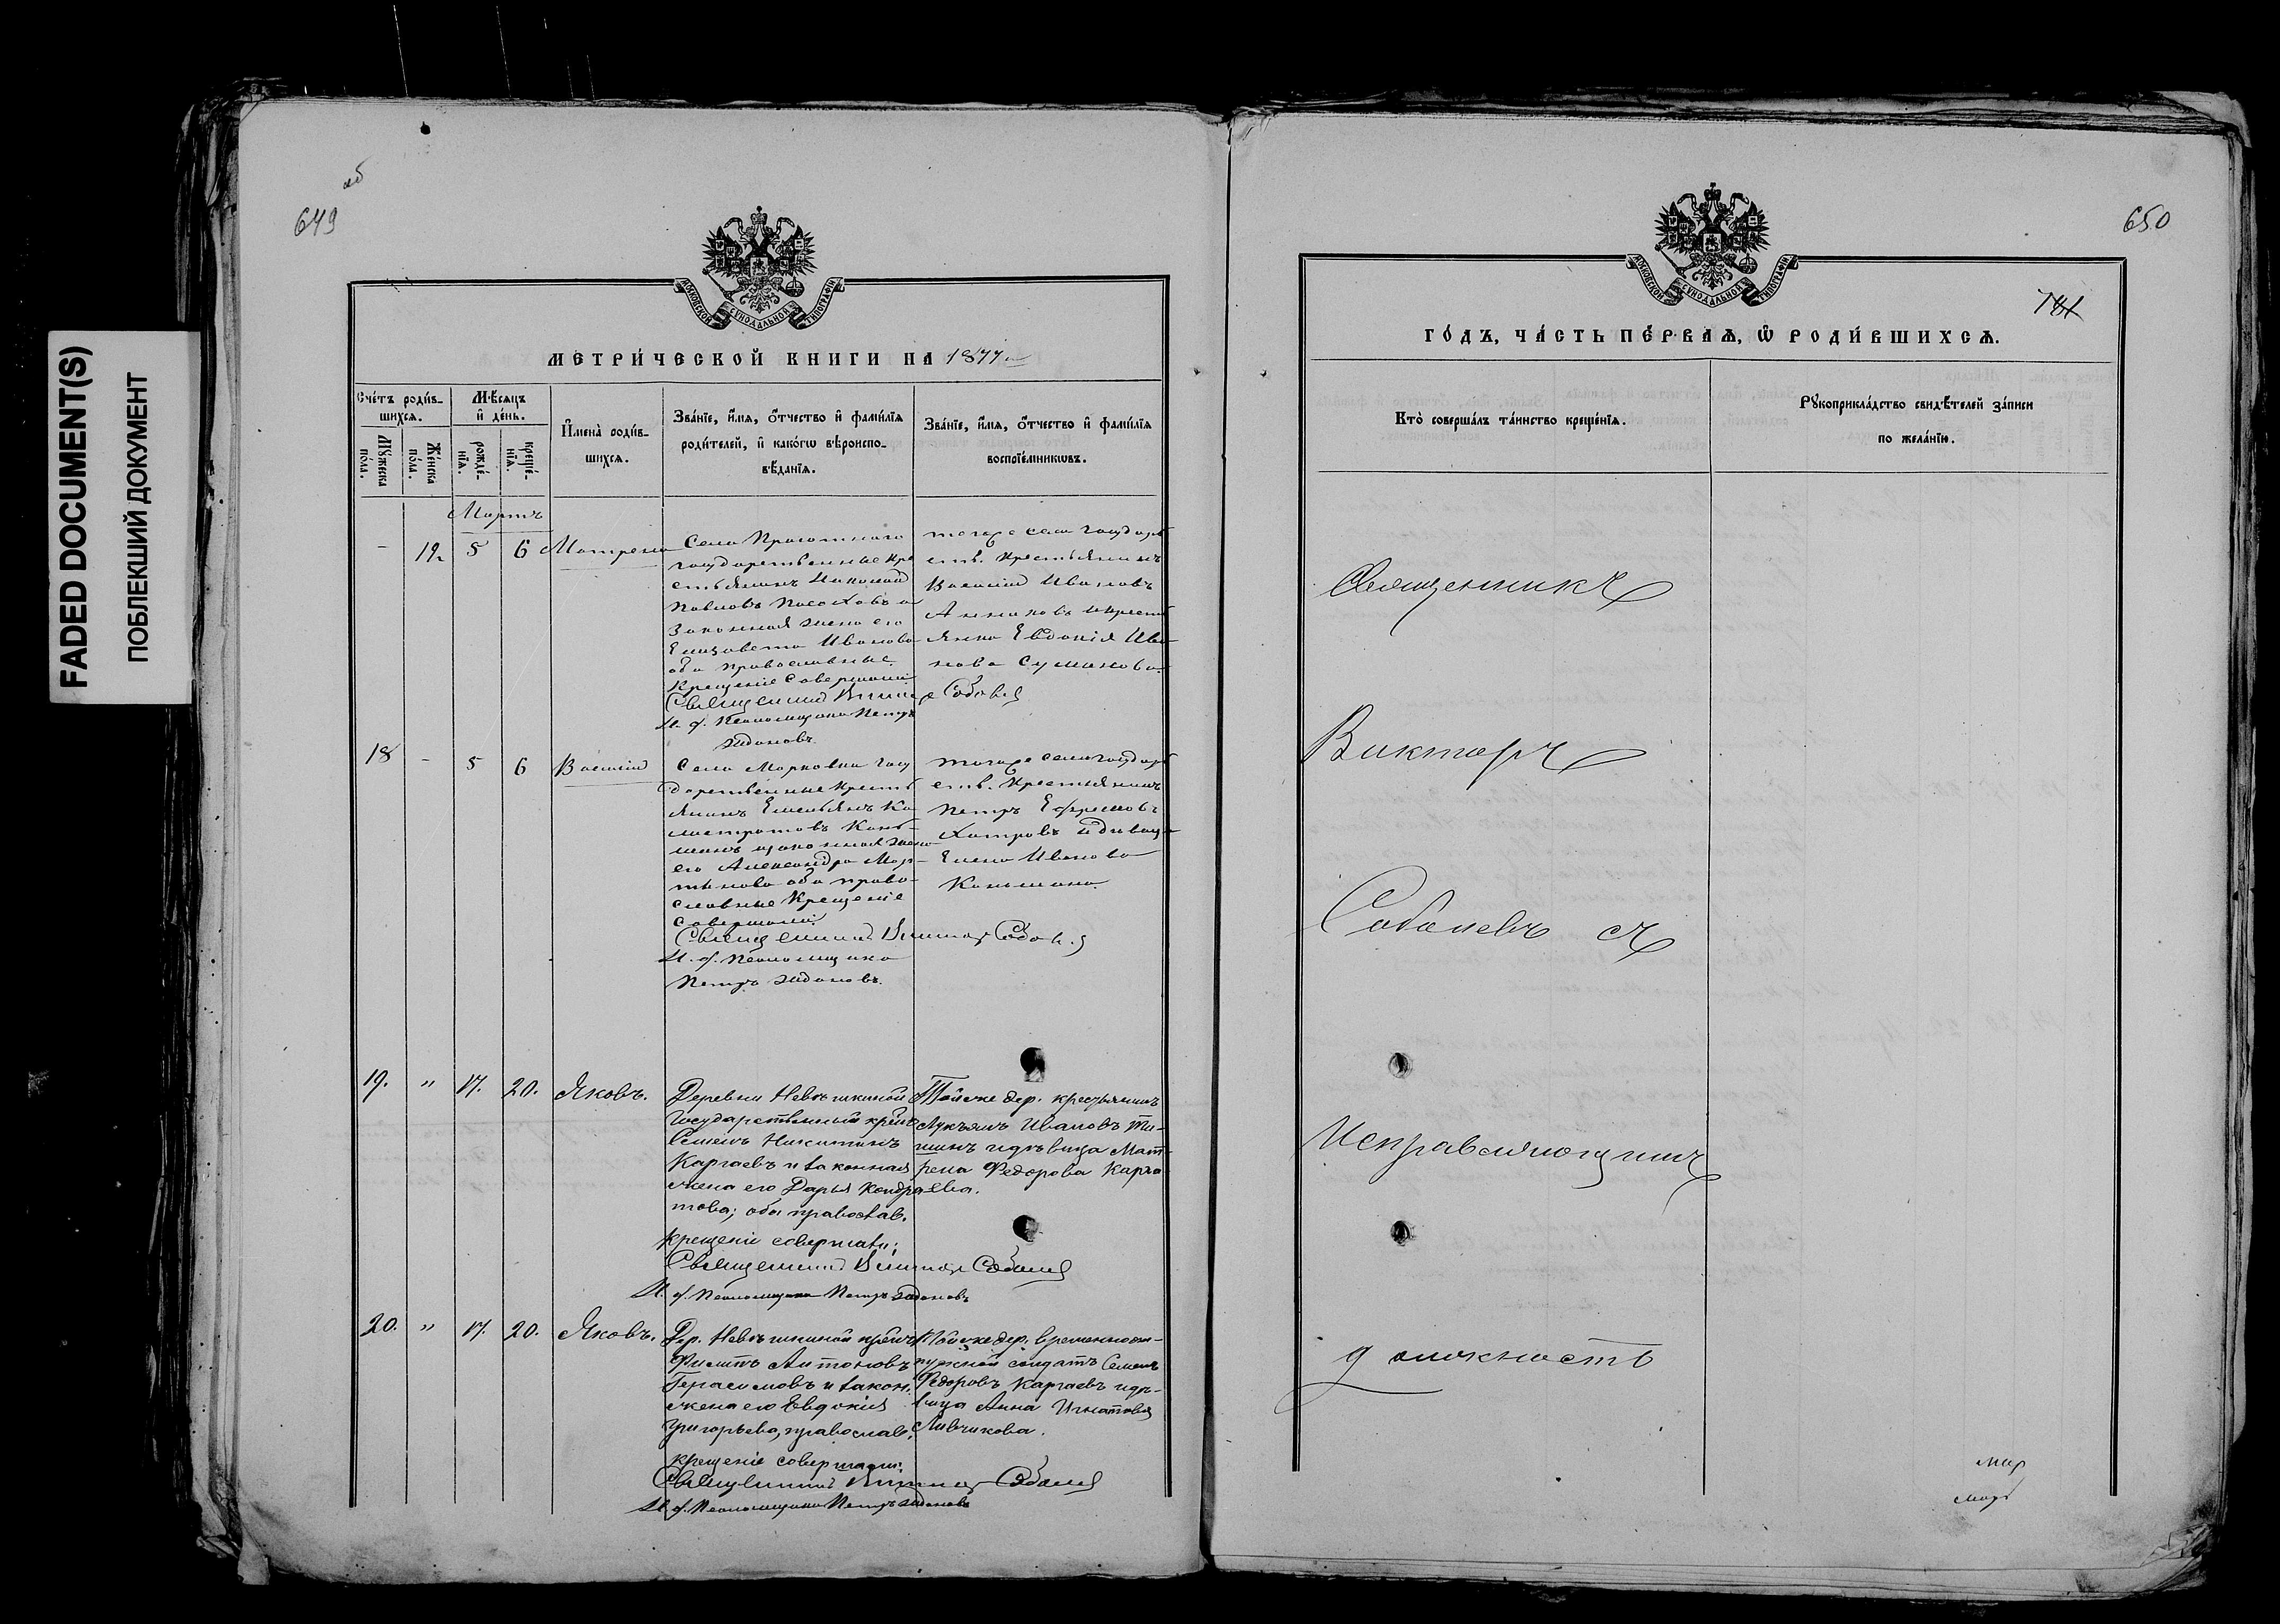 FADED DOCUMENT(S)
ПОБЛЕКШИЙ ДОКУМЕНТ
об
649
МОСКОВСКОЙ СѴНОДАЛЬНОЙ ТИПОГРАФІИ
МЕТРИ́ЧЕСКОЙ КНИГИ НА 1877
Сче́тъ роди́в-
шихсѧ.
Мѣ́сяцъ
и҆ де́нь.
Мꙋ́жеска
по́ла.
Же́нска
по́ла.
рожде́-
нїѧ.
креще́-
нїѧ.
И҆мена̀ роди́в-
шихсѧ.
Зва́нїе, и҆́мѧ, ѻ҆́тчество и҆ фами́лїѧ
роди́телей, и҆ како́гѡ вѣ́роиспо-
вѣ́данїѧ.
Зва́нїе, и҆́мѧ, ѻ҆́тчество и҆ фами́лїѧ
воспрїе́мникѡвъ.
Мартъ
- 12 5 6 Матрена
Села
государственные кре
стьянинъ Николай
Павловъ и
Законная жена его
Елизавета Иванова
оба православные
Крещеніе Совершали
Священникъ Викторъ Соболевъ
И. д. Псаломщика Петръ
Ждановъ
тогоже села государ
ств. Крестьянинъ
Василій Ивановъ
и крест
янка Евдокія Ива
нова
18 - 5 6 Василій
Села Марковки госу
дарственные кресть
янинъ Емельянъ Ка
листратовъКонь-
шинъ и законная жена
его Александра Мар-
тынова оба право-
славные Крещеніе
Совершали
Священникъ Викторъ Соболевъ
И. д. Псаломщика
Петръ Ждановъ
тогоже села государ
ств. Крестьянинъ
Петръ Ефремовъ
и дѣвица
Елена Иванова
Коньшина
19. " 17. 20. Яковъ.
Деревни Невѣжкиной
Государственный крест
Семенъ Никитинъ
Каргаевъ и законная
жена его Дарья Кондра
това; оба православ.
крещеніе совершали:
Священникъ Викторъ Соболевъ
И. д. Псаломщика Петръ Ждановъ
Тойже дер. крестьянинъ
Лукьянъ Ивановъ Ти-
шинъ и дѣвица Мат-
рена Федорова Карга
ева.
20. " 17. 20. Яковъ.
Дер. Невѣжкиной крест
Филиппъ Антоновъ
Герасимовъ и закон.
жена его Евдокія
Григорьева, православ.
крещеніе совершали:
Священникъ Викторъ Соболевъ
И. д. Псаломщика Петръ Ждановъ
Тойже дер. временноот-
пускной солдатъ Семенъ
Федоровъ Каргаевъ и дѣ-
вица Анна Игнатова
Ливчикова.
650
781
МОСКОВСКОЙ СѴНОДАЛЬНОЙ ТИПОГРАФІИ
ГО́ДЪ, ЧА́СТЬ ПЕ́РВАѦ, Ѽ РОДИ́ВШИХСѦ.
Кто̀ соверша́лъ та́инство креще́нїѧ.
Рꙋкоприкла́дство свидѣ́телей за́писи
по жела́нїю.
Священникъ
Викторъ
Соболевъ съ
Исправляющимъ
должность